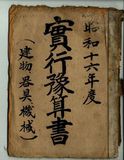 昭和十六年度
實行豫算書
(建物器具機械)